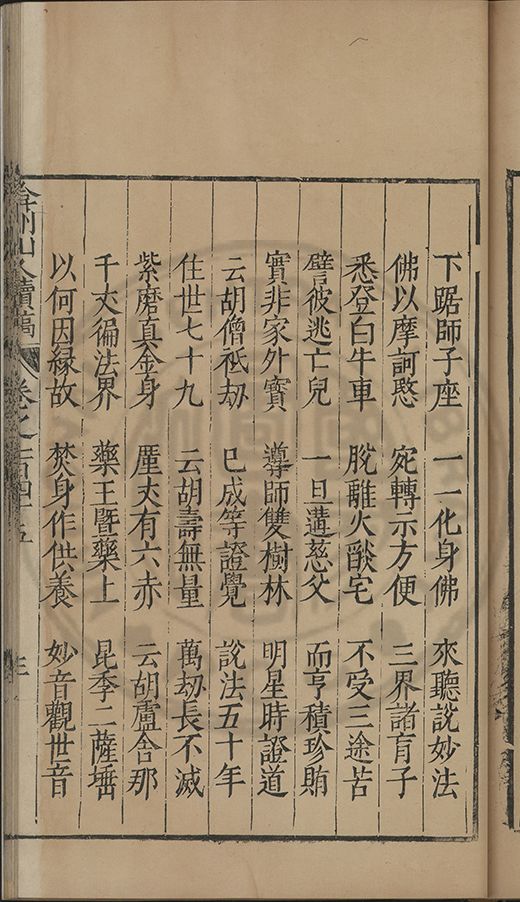 下踞師子座　一一化身佛　來聽說妙法
佛以摩訶愍　宛轉示方便　三界諸育子
悉登白牛車　脫離火燄宅　不受三途苦
譬彼逃亡兒　一旦遘慈父　而亨積珍賄
實非家外寶　導師雙樹林　明星時證道
云胡僧祇劫　已成等證覺　說法五十年
住世七十九　云胡壽無量　萬劫長不滅
紫磨真金身　厪丈有六赤　云胡盧舍那
千丈徧法界　藥王暨藥上　昆季二薩埵
以何因緣故　焚身作供養　妙音觀世音
弇州山人續稿　卷之一百四十五　三